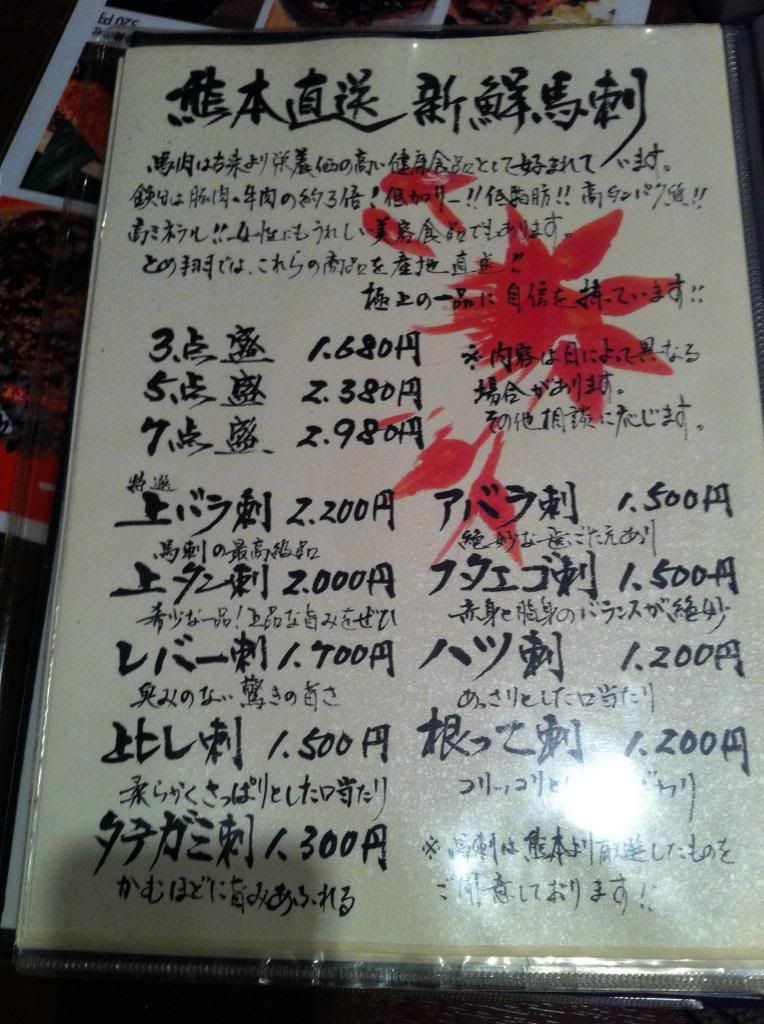 熊本直送 新鮮馬刺
馬肉は古来より栄養価の高い健康食品として好まれています。
鉄分は豚肉・牛肉の約3倍!低カロリー!!低脂肪!!高タンパク質!!
高ミネラル!!女性にもうれしい美容食品でもあります。
とめ羽では、これらの商品を産地直送!!
極上の一品に自信を持っています!!
3点盛 1.680円
5点盛 2.380円
7点盛 2.980円
※内容は日によって異なる
場合があります。
その他相談に応じます。
特選
上バラ刺 2.200円
馬刺の最高級品
上タン刺 2.000円
希少な一品!上品な旨みをぜひ
レバー刺 1.700円
臭みのない驚きの旨さ
上ヒレ刺 1.500円
柔らかくさっぱりとした口当たり
タテガミ刺 1.300円
かむほどに旨みあふれる
アバラ刺 1.500円
絶妙な歯ごたえあり
フタエゴ刺 1.500円
赤身と脂身のバランスが絶妙
ハツ刺 1.200円
あっさりとした口当たり
根っこ刺 1.200円
コリッコリと
※馬刺は熊本より厳選したものを
ご用意しております!!
520円